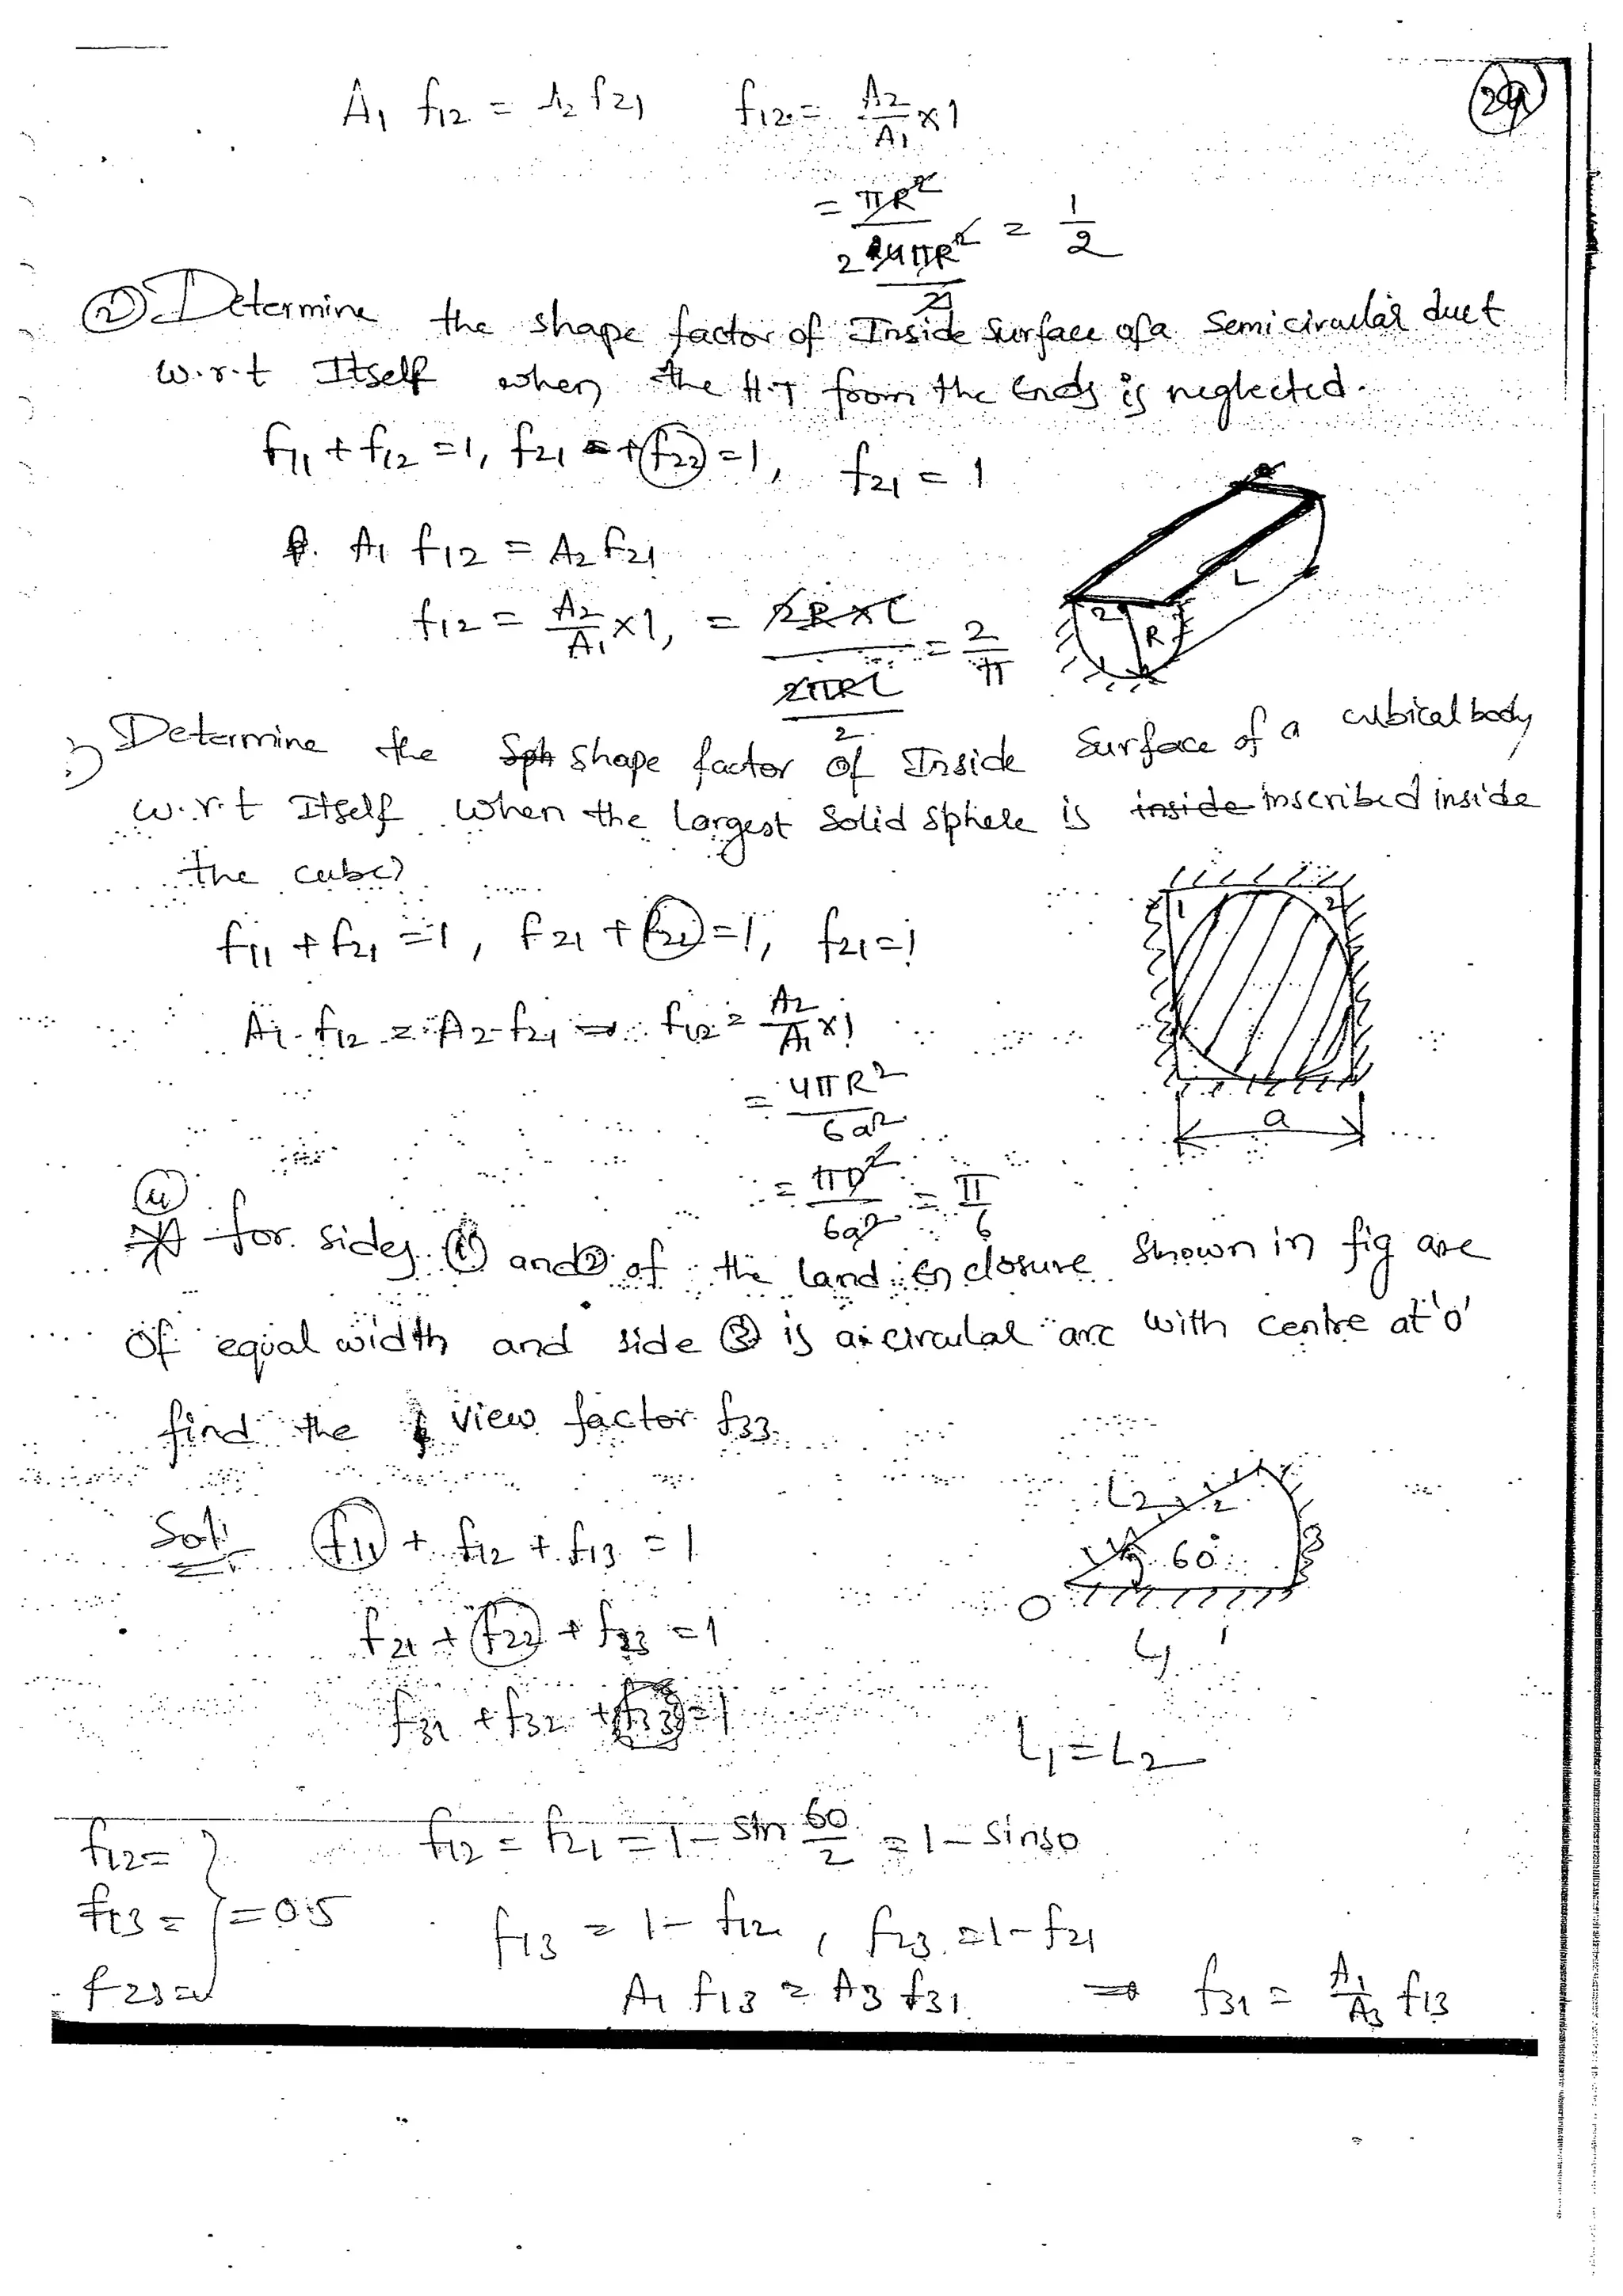 29
A1 f12 = A2 f21 f12 = A2/A1 × 1
= πR²/(4πR²/2) = 1/2
② Determine the shape factor of Inside Surface of a Semicircular duct
w.r.t Itself when the H.T from the Ends is neglected.
f11 + f12 = 1, f21 + f22 = 1, f21 = 1
A1 f12 = A2 f21
f12 = A2/A1 × 1, = 2R×L/(2πRL/2) = 2/π
2 R L
Determine the shape factor of Inside Surface of a cubical body
w.r.t Itself when the largest Solid Sphere is inside inscribed inside
the cube)
f11 + f21 = 1, f21 + f22 = 1, f21 = 1
A1 . f12 = A2 f21 ⇒ f12 = A2/A1 × 1
= 4πR²/6a²
= πD²/6a² = π/6
1 2 a
④ for sides ① and ② of the land Enclosure Shown in fig are
of equal width and side ③ is a circular arc with centre at 'o'
find the view factor f33.
Sol: f11 + f12 + f13 = 1
f21 + f22 + f23 = 1
f31 + f32 + f33 = 1
L2 2 60° 3 O L1 1
L1 = L2
f12 = f21 = 1 - sin 60/2 = 1 - sin30
f12 =
f13 = } = 0.5
f23 =
f13 = 1 - f12, f23 = 1 - f21
A1 f13 = A3 f31 ⇒ f31 = A1/A3 f13